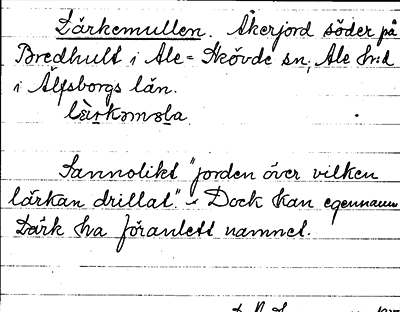 Lärkemullen. Åkerjord söder på
Bredhult i Ale-Skövde sn, Ale hrd
i Älfsborgs län.
Sannolikt "jorden över vilken
lärkan drillat." - Dock kan egennamn
Lärk ha föranlett namnet.